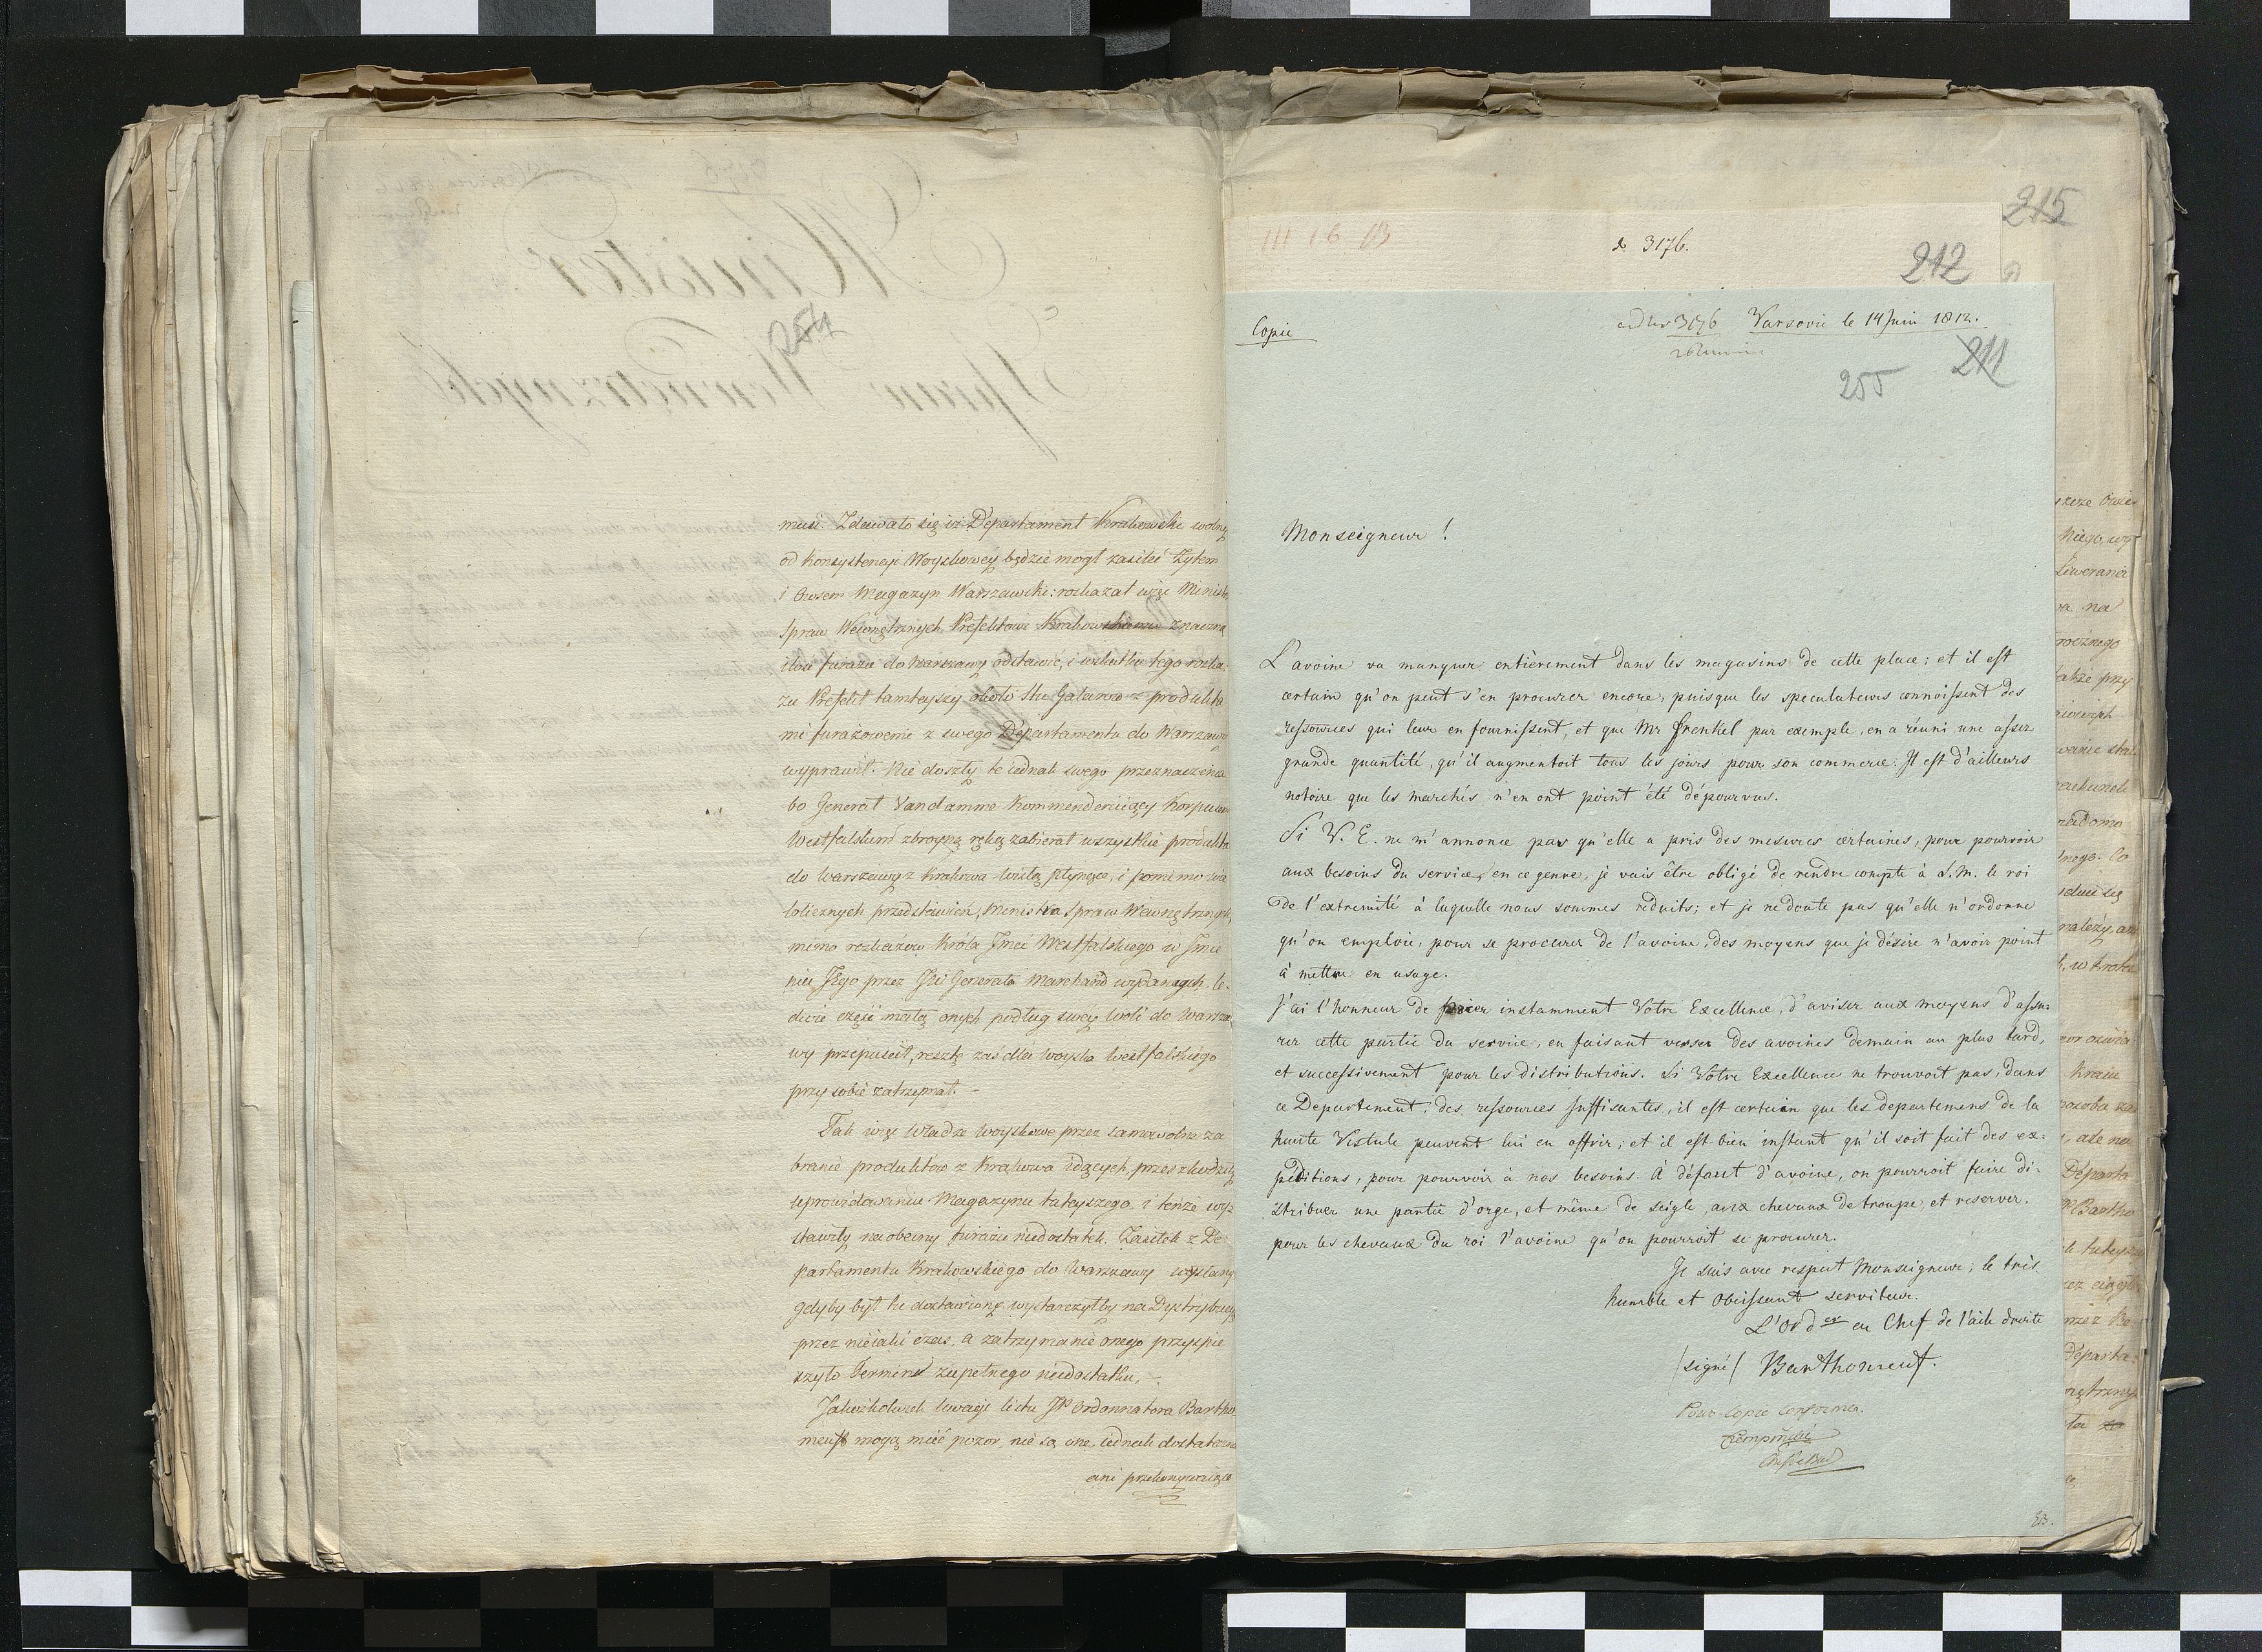 254
musi. Zdawało się iż Departament Krakowski wolny
od konsystencyi Woyskowey będzie mogł zasileć Żytem
i Owsem Magazyn Warszawski: rozkazał więc Ministe
Spraw Wewnętrznych Prefektowi Krakowskiemu znaczną
ilość furażu do Warszawy odstawić, i wskutku tego rozka-
zu Prefekt tamteyszy około Stu Galarów z produkta
mi furażowemi z swego Departamentu do Warszawy
wyprawił. Nie doszły te iednak swego przeznaczenia
bo Generał Vandamme Kommenderuiący Korpusem
Westfalskim zbroyną ręką zabierał wszystkie produkta
do Warszawy z Krakowa wisłą płynące, i pomimo
licznych przedstawień, Ministra Spraw Wewnętrznych,
mimo rozkazów Króla Jmci Westfalskiego w Jmie
niu Jego przez JP Generała Marchand wydanych, le-
dwie część małą onych podług swey woli do Warsza
wy przepuścił, resztę zaś dla woyska Westfalskiego
przy sobie zatrzymał. –
Tak więc Władze woyskowe przez samowolne za
branie produktów z Krakowa idących, przeszkodziły
uprowidowaniu Magazynu tuteyszego i tenże wy-
stawiły na obecny furażu niedostatek. Zasiłek z De-
partamentu Krakowskiego do Warszawy wysłany
gdyby był tu dostawiony wystarczyłby na Dystrybucyą
przez nieiaki czas, a zatrzymanie onego przyspie
szyło Termin zupełnego niedostatku, –
Jakieżkolwiek uwagi listu JP Ordonnatora Bartho-
meuf mogą mieć pozor, nie są one iednak dostateczne
ani przekonywaiące
215
3176.
212
Copie
ad Nr 3176 Varsovie le 14 Juin 1812.
211
255
Monseigneur !
L'avoine va manquer entièrement dans les magasins de cette place; et il est
certain qu'on peut s'en procurer encore, puisque les speculateurs connoissent des
ressources qui leur en fournissent, et que Mr Frenkel par exemple, en a réuni une assez
grande quantité, qu'il augmentoit tous les jours pour son commerce. Il est d'ailleurs
notoire que les marchés n'en ont point été dépourvus.
Si V. E. ne m'annonce pas qu'elle a pris des mesures certaines, pour pourvoir
aux besoins du service, en ce genre, je vais être obligé de rendre compte à S. M. le roi
de l'extremité à laquelle nous sommes réduits; et je ne doute pas qu'elle n'ordonne
qu'on emploie, pour se procurer de l'avoine, des moyens que je désire n'avoir point
à mettre en usage.
J'ai l'honneur de prier instamment Votre Excellence, d'aviser aux moyens d'assu-
rer cette partie du service, en faisant verser des avoines demain au plus tard,
et successivement pour les distributions. Si Votre Excellence ne trouvoit pas, dans
ce Departement, des ressources suffisantes, il est certain que les departemens de la
haute Vistule peuvent lui en offrir; et il est bien instant qu'il soit fait des ex-
péditions, pour pourvoir à nos besoins. A défaut d'avoine, on pourroit faire di-
stribuer une partie d'orge, et même de seigle, aux chevaux de troupe, et reserver
pour les chevaux du roi l'avoine qu'on pourroit se procurer.
Je suis avec respect Monseigneur, le très
humble et obéissant serviteur.
L'Ord.er en Chef de l'aile droite
(signé) Barthomeuf.
Pour copie conforme.